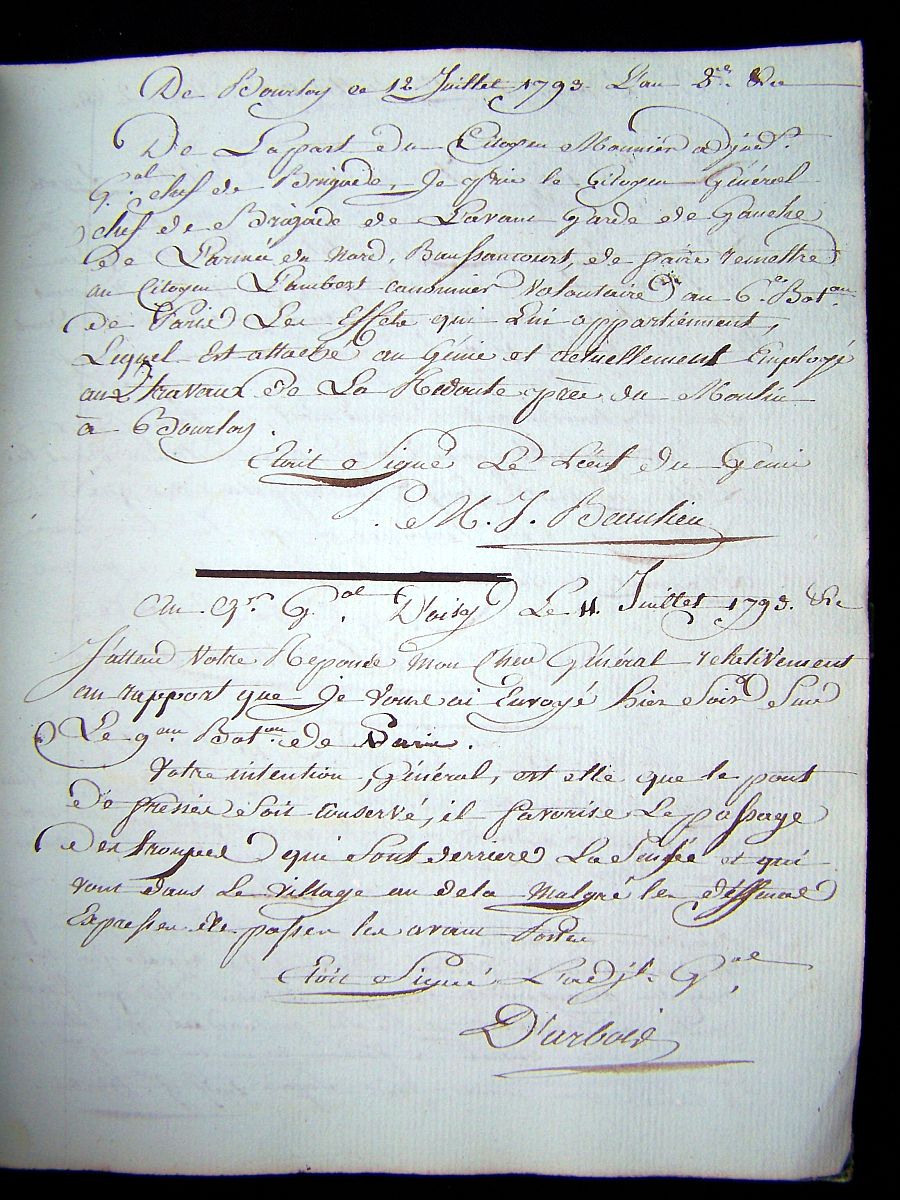 De Bourlon ce 12 Juillet 1793 L'an 2.e &c
De Lapart du Citoyen Mounier adjud.t
G.al chef de Brigade, Je prie le Citoyen Général
chef de Brigade de L'avant garde de Gauche
De L'armée du Nord, Baussancourt, de faire remettre
au Citoyen Lambert canonnier volontaire au 6.e Bat.on
de Paris Les Effets qui Lui appartiennent,
Lequel Est attaché au Génie et actuellement Employé
aux travaux de La Redoute près du Moulin
à Bourlon.
Etoit Signé Le Lieut du Genie
P. M. J. Beaulieu
Au G.al D'oisy Le 11 Juillet 1793. &c
J'attend Votre Reponse Mon Cher Général relativement
au rapport que Je vous ai Envoyé hier Soir Sur
Le 9.eme Bat.on de Paris.
Votre intention, Général, est elle que le pont
D'a fressies Soit conservé, il favorise Le passage
Des troupes qui Sont derriere La Sensée et qui
vont dans Le village au dela Malgré les déffenses
Expresses de passer les avant Postes
Etoit Signé L'adj.t G.al
D'arbois